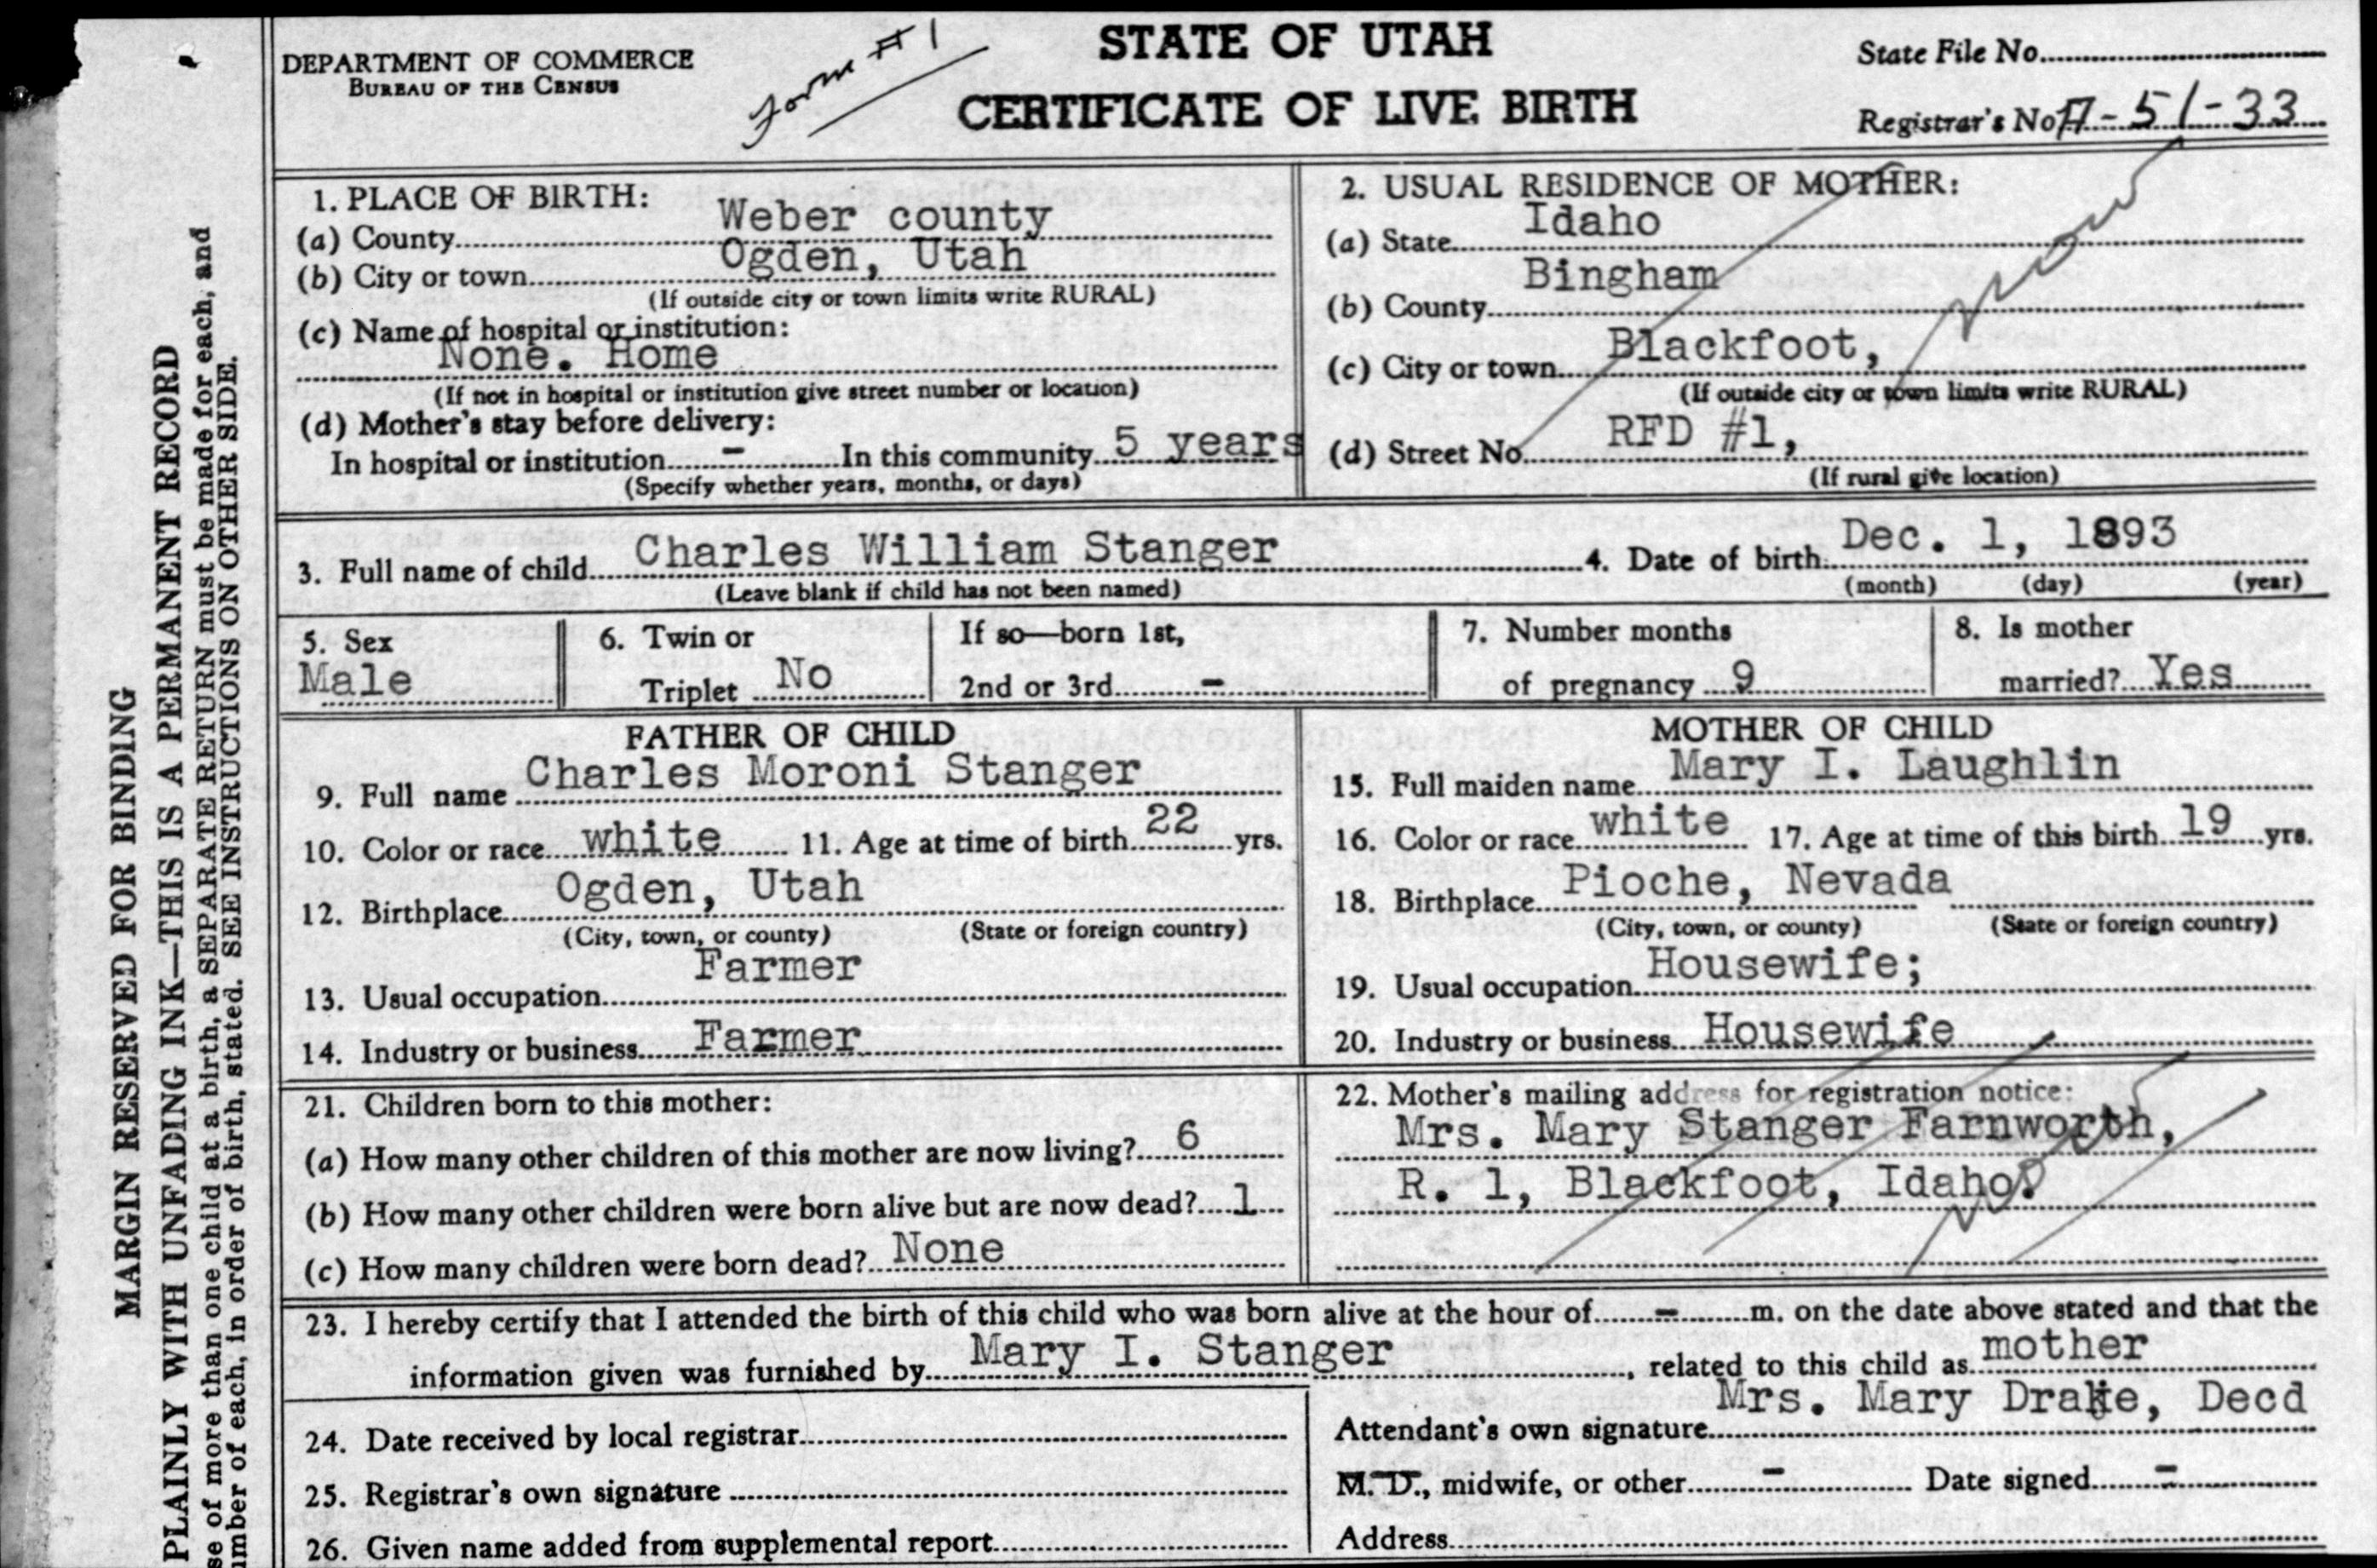 DEPARTMENT OF COMMERCE
BUREAU OF THE CENSUS
Form #1
STATE OF UTAH
CERTIFICATE OF LIVE BIRTH
State File No.
Registrar's No. A-51-33
MARGIN RESERVED FOR BINDING
PLAINLY WITH UNFADING INK—THIS IS A PERMANENT RECORD
se of more than one child at a birth, a SEPARATE RETURN must be made for each, and
umber of each, in order of birth, stated. SEE INSTRUCTIONS ON OTHER SIDE.
1. PLACE OF BIRTH:
(a) County Weber county
(b) City or town Ogden, Utah
(If outside city or town limits write RURAL)
(c) Name of hospital or institution:
None. Home
(If not in hospital or institution give street number or location)
(d) Mother's stay before delivery:
In hospital or institution - In this community 5 years
(Specify whether years, months, or days)
2. USUAL RESIDENCE OF MOTHER:
(a) State Idaho
(b) County Bingham
(c) City or town Blackfoot,
(If outside city or town limits write RURAL)
(d) Street No. RFD #1,
(If rural give location)
now
3. Full name of child Charles William Stanger 4. Date of birth Dec. 1, 1893
(Leave blank if child has not been named) (month) (day) (year)
5. Sex
Male
6. Twin or
Triplet No
If so—born 1st,
2nd or 3rd -
7. Number months
of pregnancy 9
8. Is mother
married? Yes
FATHER OF CHILD
9. Full name Charles Moroni Stanger
10. Color or race white 11. Age at time of birth 22 yrs.
12. Birthplace Ogden, Utah
(City, town, or county) (State or foreign country)
13. Usual occupation Farmer
14. Industry or business Farmer
MOTHER OF CHILD
15. Full maiden name Mary I. Laughlin
16. Color or race white 17. Age at time of this birth 19 yrs.
18. Birthplace Pioche, Nevada
(City, town, or county) (State or foreign country)
19. Usual occupation Housewife;
20. Industry or business Housewife
21. Children born to this mother:
(a) How many other children of this mother are now living? 6
(b) How many other children were born alive but are now dead? 1
(c) How many children were born dead? None
22. Mother's mailing address for registration notice:
Mrs. Mary Stanger Farnworth,
R. 1, Blackfoot, Idaho.
23. I hereby certify that I attended the birth of this child who was born alive at the hour of - m. on the date above stated and that the
information given was furnished by Mary I. Stanger, related to this child as mother
24. Date received by local registrar
25. Registrar's own signature
26. Given name added from supplemental report
Mrs. Mary Drake, Decd
Attendant's own signature
M. D., midwife, or other - Date signed -
Address